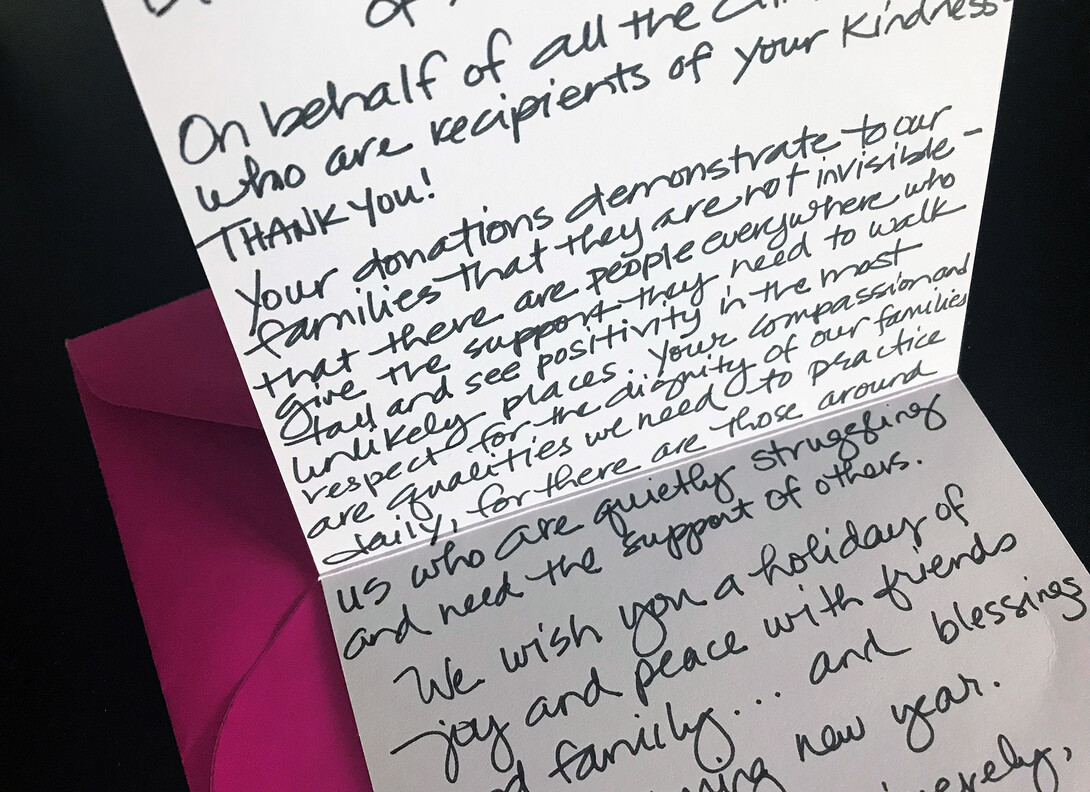 of
On behalf of all the
who are recipients of your kindness-
THANK YOU!
Your donations demonstrate to our
families that they are not invisible-
that there are people everywhere who
give the support they need to walk
tall and see positivity in the most
unlikely places. Your compassion and
respect for the dignity of our families
are qualities we need to practice
daily, for there are those around
us who are quietly struggling
and need the support of others.
We wish you a holiday of
joy and peace with friends
family... and blessings
new year.